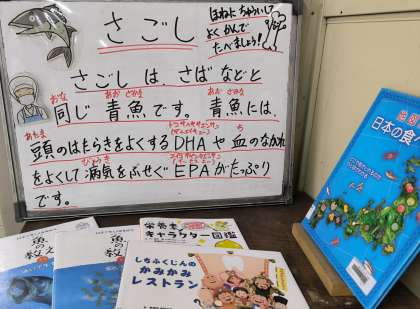 さごし
ほねに ちゅういして
よく かんで
たべましょう!
さごし は、さば などと
おな あお ざかな あお ざかな
同じ 青魚です。青魚には、
あたま ち
頭のはたらきをよくするDHAや血のながれ
びょうき
をよくして病気をふせぐEPAがたっぷり
です。
日本の食
魚の
教え
魚の
教え
栄養素
キャラクター図鑑
しちふくじんの
かみかみ
レストラン